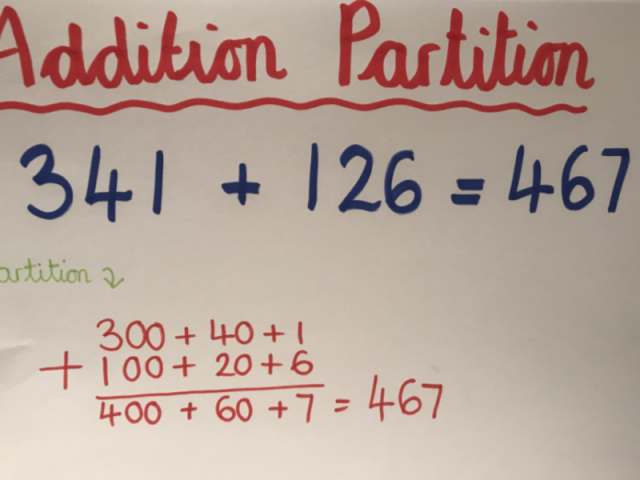 Addition Partition
341 + 126 = 467
artition
300 + 40 + 1
+ 100 + 20 + 6
400 + 60 + 7 = 467